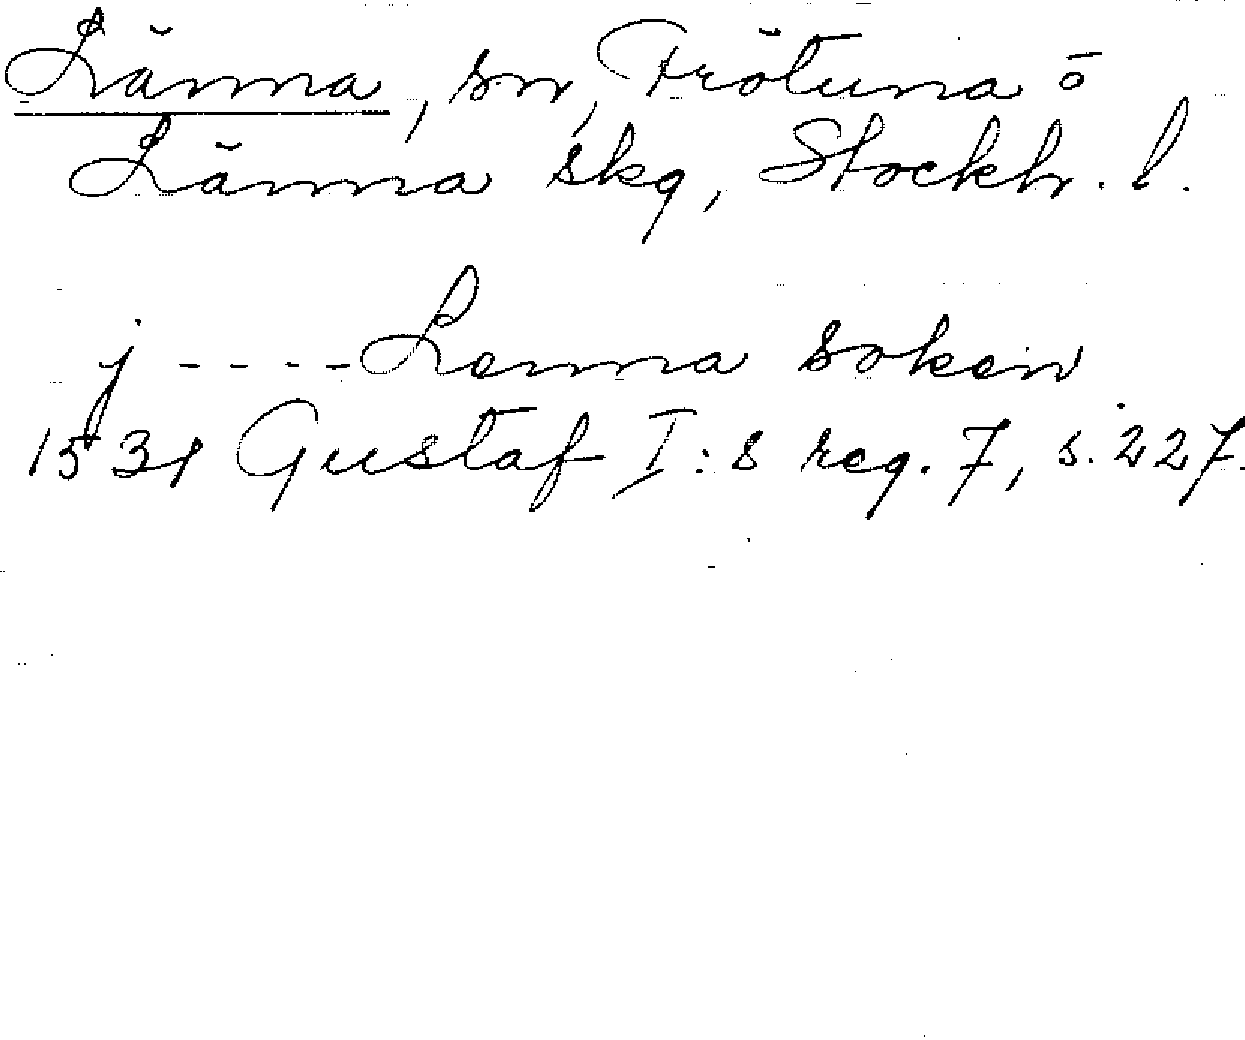 Länna, sn, Frötuna o
Länna skg, Stockh. l.
j ---- Lenna soken
1531 Gustaf I:s reg. 7, s. 227.